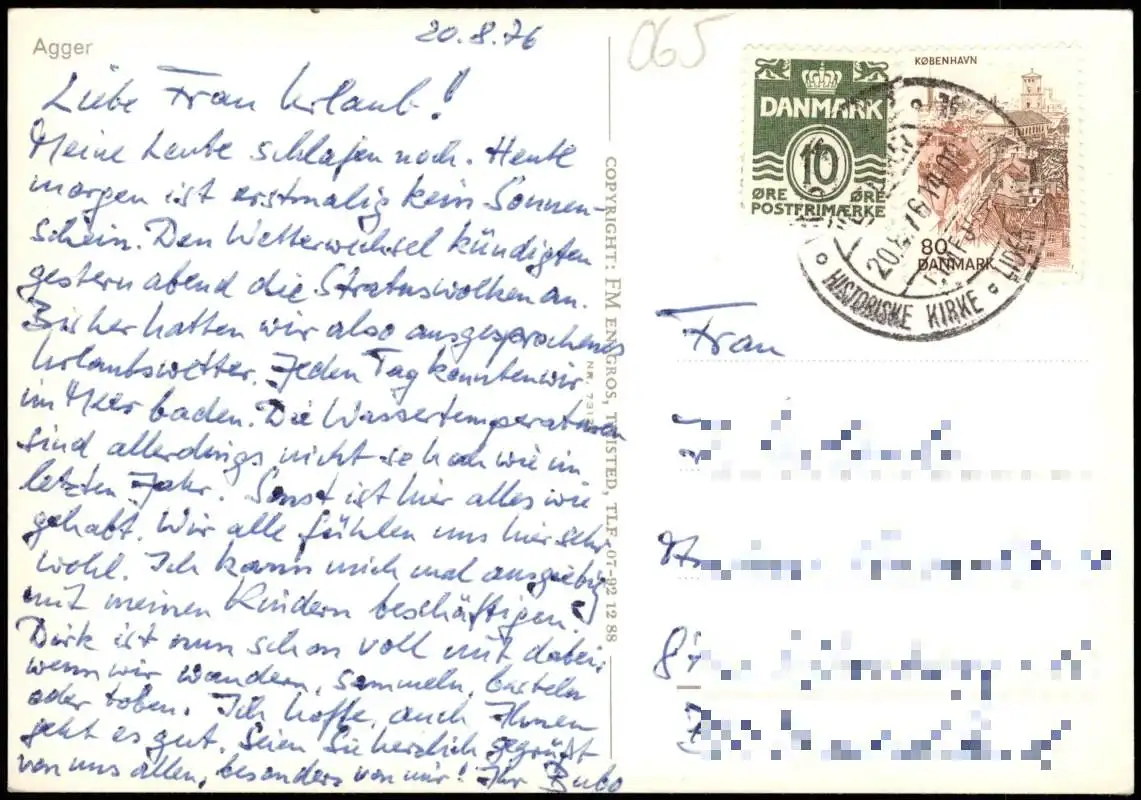 Agger
20.8.76
065
Liebe Frau Urlaub!
Meine Leute schlafen noch. Heute
morgen ist erstmalig kein Sonnen-
schein. Den Wetterwechsel kündigten
gestern abend die Stratuswolken an.
Bisher hatten wir also ausgesprochenes
Urlaubswetter. Jeden Tag konnten wir
im Meer baden. Die Wassertemperaturen
sind allerdings nicht so hoch wie im
letzten Jahr. Sonst ist hier alles wie
gehabt. Wir alle fühlen uns hier sehr
wohl. Ich kann mich mal ausgiebig
mit meinen Kindern beschäftigen.
Dirk ist nun schon voll mit dabei,
wenn wir wandern, sammeln, basteln
oder toben. Ich hoffe, auch Ihnen
geht es gut. Seien Sie herzlich gegrüßt
von uns allen, besonders von mir! Ihr Bubo
COPYRIGHT: FM ENGROS, THISTED, TLF. 07-92 12 88
DANMARK
10
ØRE ØRE
POSTFRIMÆRKE
KØBENHAVN
80
DANMARK
HISTORISKE KIRKE
Frau